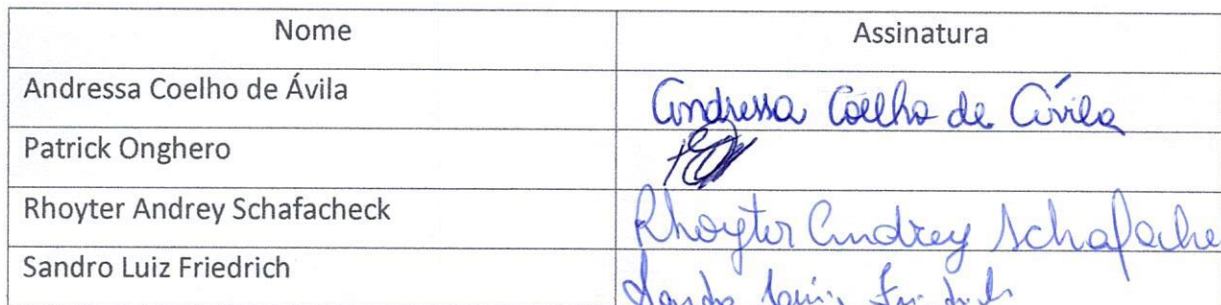 Nome Assinatura
Andressa Coelho de Ávila Andressa Coelho de Ávila
Patrick Onghero
Rhoyter Andrey Schafacheck Rhoyter Andrey Schafache
Sandro Luiz Friedrich Sandro Luiz Friedrich